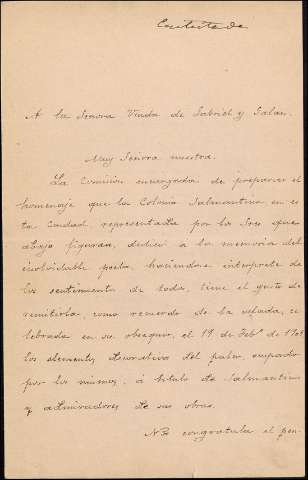 Contestada
A la Señora Viuda de Gabriel y Galan.
Muy Señora nuestra:
La Comision encargada de preparar el
homenaje que la Colonia Salmantina en es
ta Ciudad representada por los Sres que
abajo figuran, dedicó a la memoria del
inolvidable poeta, haciendose interprete de
los sentimientos de toda, tiene el gusto de
remitirla, como recuerdo de la velada, ce
lebrada en su obsequio, el 19 de Febº de
los elementos decorativos del palco, ocupado
por los mismos, á titulo de Salmantinos
y admiradores de sus obras.
Nos congratula el pen-